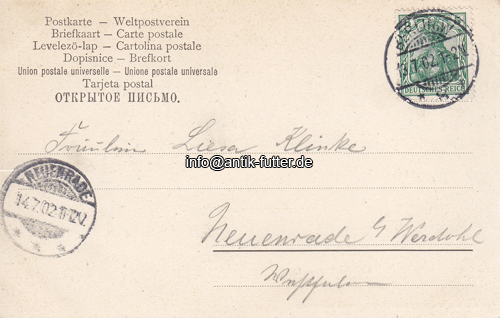 Postkarte - Weltpostverein
Briefkaart - Carte postale
Levelező-lap - Cartolina postale
Dopisnice - Brefkort
Union postale universelle - Unione postale universale
Tarjeta postal
ОТКРЫТОЕ ПИСЬМО.
DEUTSCHES REICH
7.02.1-2N.
Fräulein Liesa Klinke
info@antik-futter.de
NEUENRADE
14.7.02.11-12V.
Neuenrade b/ Werdohl
Westfalen